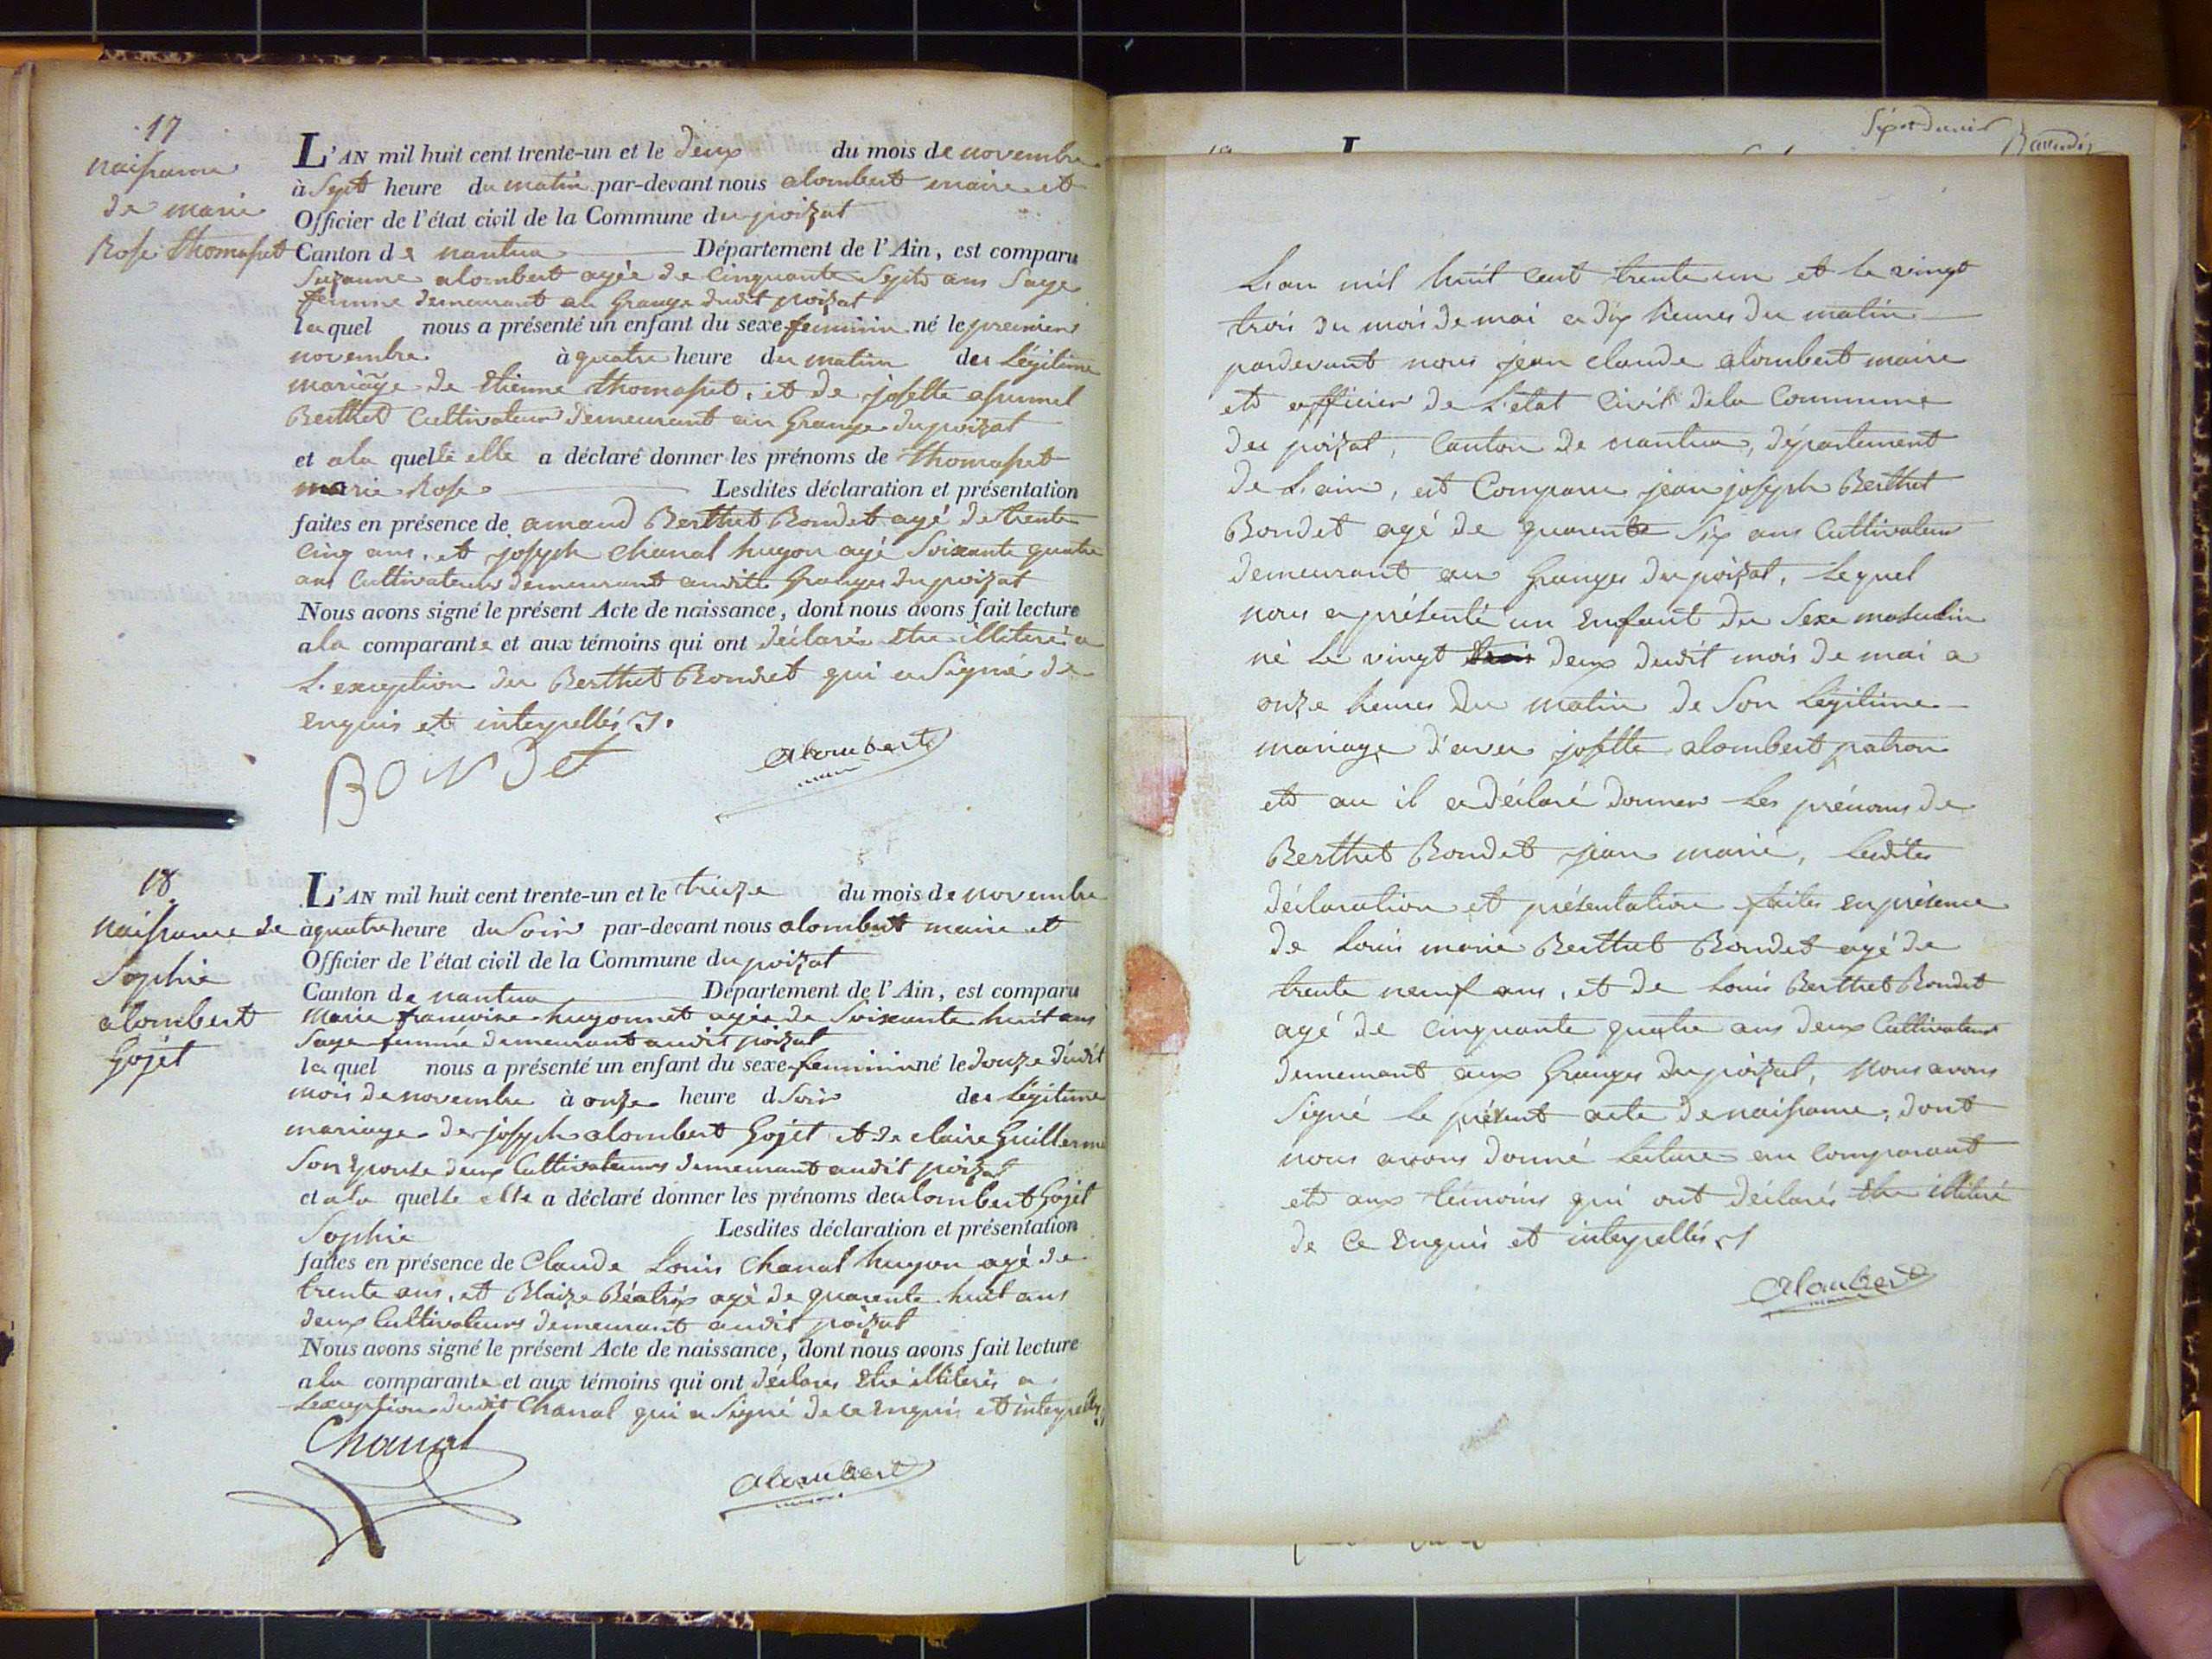 17
naissance
de marie
Rose thomasset
L'AN mil huit cent trente-un et le deux du mois de novembre
à Sept heure du matin par-devant nous alombert maire et
Officier de l'état civil de la Commune du poizat
Canton de nantua Département de l'Ain, est comparu
Suzanne alombert agée de Cinquante Sept ans Sage
femme demeurant au Grange dudit poizat
laquel nous a présenté un enfant du sexe feminin né le premier
novembre à quatre heure du matin du Légitime
mariage de Etienne thomasset, et de josette
Berthet Cultivateur demeurant au Grange du poizat
et ala quelle elle a déclaré donner les prénoms de thomasset
marie Rose Lesdites déclaration et présentation
faites en présence de amand Berthet Bondet agé de trente
Cinq ans, et joseph Chanal hugon agé Soixante quatre
ans Cultivateurs demeurant audite Granges du poizat
Nous avons signé le présent Acte de naissance, dont nous avons fait lecture
ala comparante et aux témoins qui ont déclaré Etre illiteré a
L'exception du Berthet Bondet qui a Signé de
Enquis et interpellés
BONDet
alombert
maire
18
Naissance de
Sophie
alombert
Gojet
L'AN mil huit cent trente-un et le treize du mois de novembre
à quatre heure du Soir par-devant nous alombert maire et
Officier de l'état civil de la Commune du poizat
Canton de nantua Département de l'Ain, est comparu
Marie francoise hugonnet agée de Soixante huit ans
Sage femme demeurant audit poizat
laquel nous a présenté un enfant du sexe feminin né le douze dudit
mois de novembre à onze heure d Soir du Légitime
mariage de joseph alombert Gojet et de claire Guillermet
Son Epouse deux Cultivateurs demeurant audit poizat
et ala quelle elle a déclaré donner les prénoms de alombert Gojet
Sophie Lesdites déclaration et présentation
faites en présence de Claude Louis Chanal hugon agé de
trente ans, et Blaize Béatrix agé de quarente huit ans
deux Cultivateurs demeurant audit poizat
Nous avons signé le présent Acte de naissance, dont nous avons fait lecture
ala comparante et aux témoins qui ont déclarés Etre illiterés a
Lexception dudit Chanal qui a Signé de ce Enquis et interpellés
Chanal
alombert
L'an mil huit cent trente un et le vingt
trois du mois de mai a dix heures du matin
pardevant nous jean claude alombert maire
et officier de L'état Civil dela Commune
du poizat, Canton de nantua, département
de L'ain, est Comparu jean joseph Berthet
Bondet agé de quarente Six ans Cultivateur
demeurant au Granges du poizat, Lequel
nous a présenté un Enfant du Sexe masculin
né Le vingt trois deux dudit mois de mai a
onze heures du matin de Son Légitime
mariage d'avec josette alombert patron
et au il a déclaré donner Les prénoms de
Berthet Bondet jean marie, Lesdites
déclaration et présentation faites en présence
de Louis marie Berthet Bondet agé de
trente neuf ans, et de Louis Berthet Bondet
agé de cinquante quatre ans deux Cultivateurs
demeurant aux Granges du poizat, Nous avons
Signé Le présent acte de naissance, dont
nous avons donné Lecture au Comparant
et aux témoins qui ont déclarés Etre illiteré
de Ce Enquis et interpellés
alombert
maire